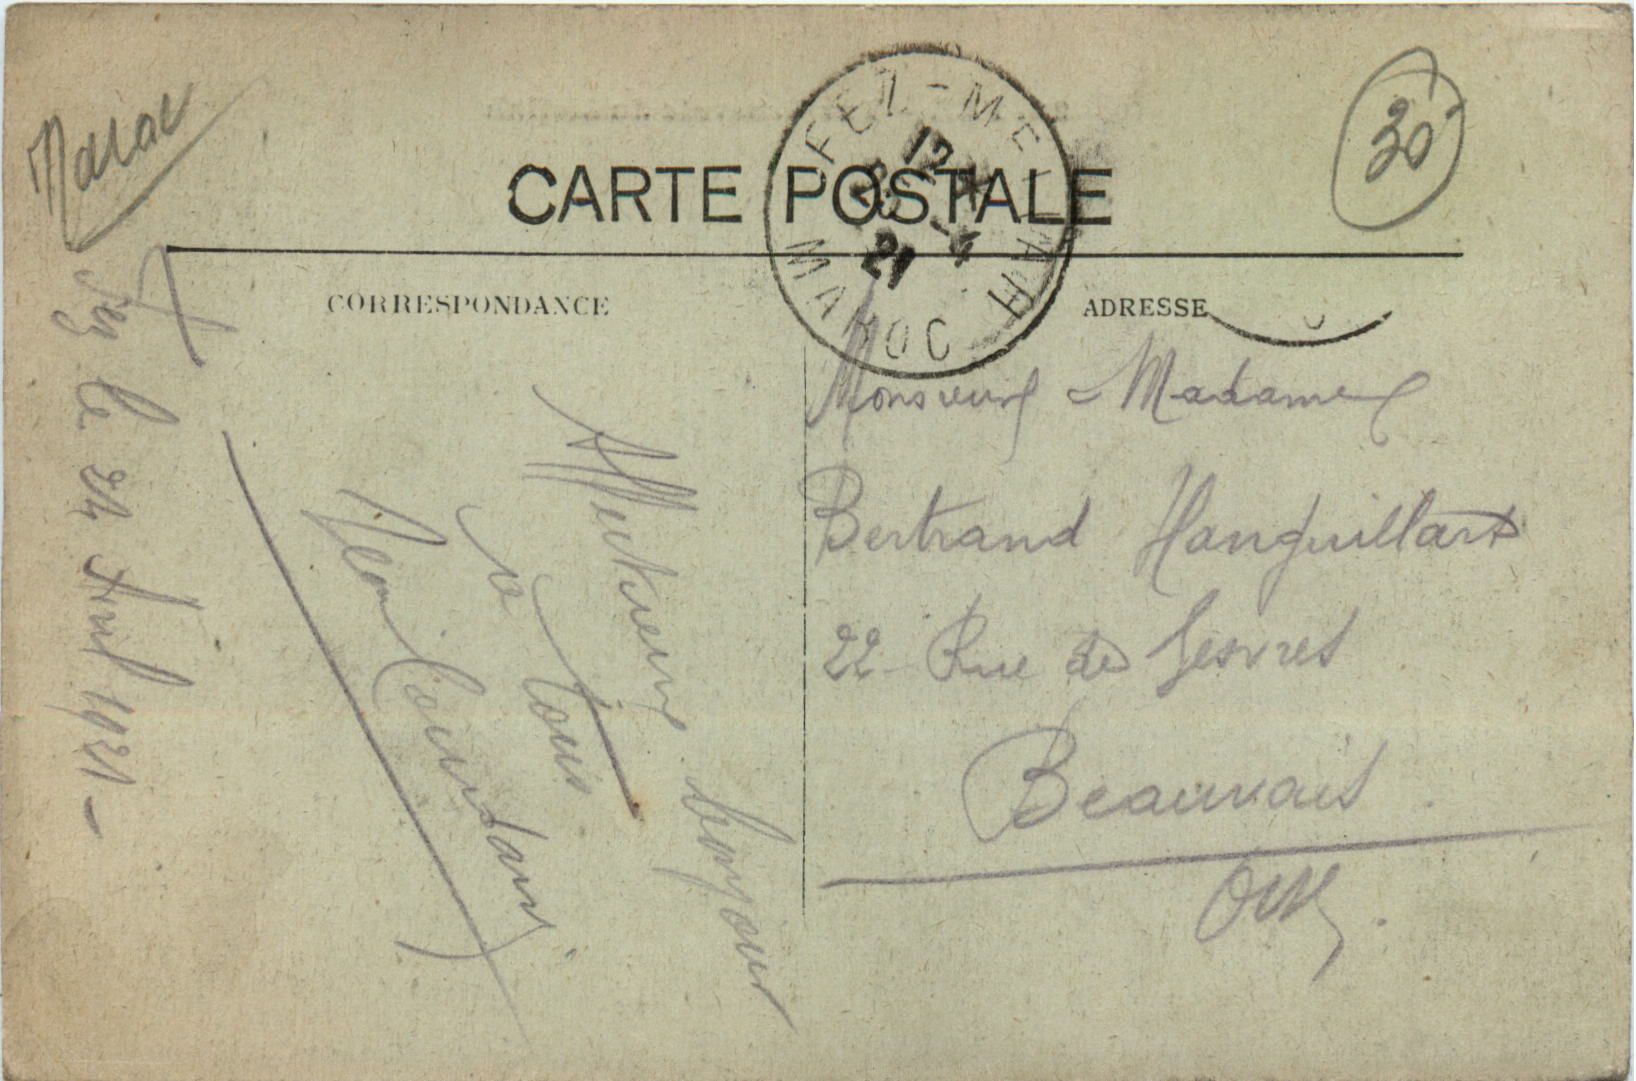 Maroc
30
CARTE POSTALE
FEZ-MELLAH
12
-4
21
MAROC
CORRESPONDANCE
ADRESSE
Fez le 24 Avril 1921 -
Affectueux bonjour
à Tous
Monsieur & Madame
Bertrand Hanguillart
22 Rue de Gesvres
Beauvais
Oise.